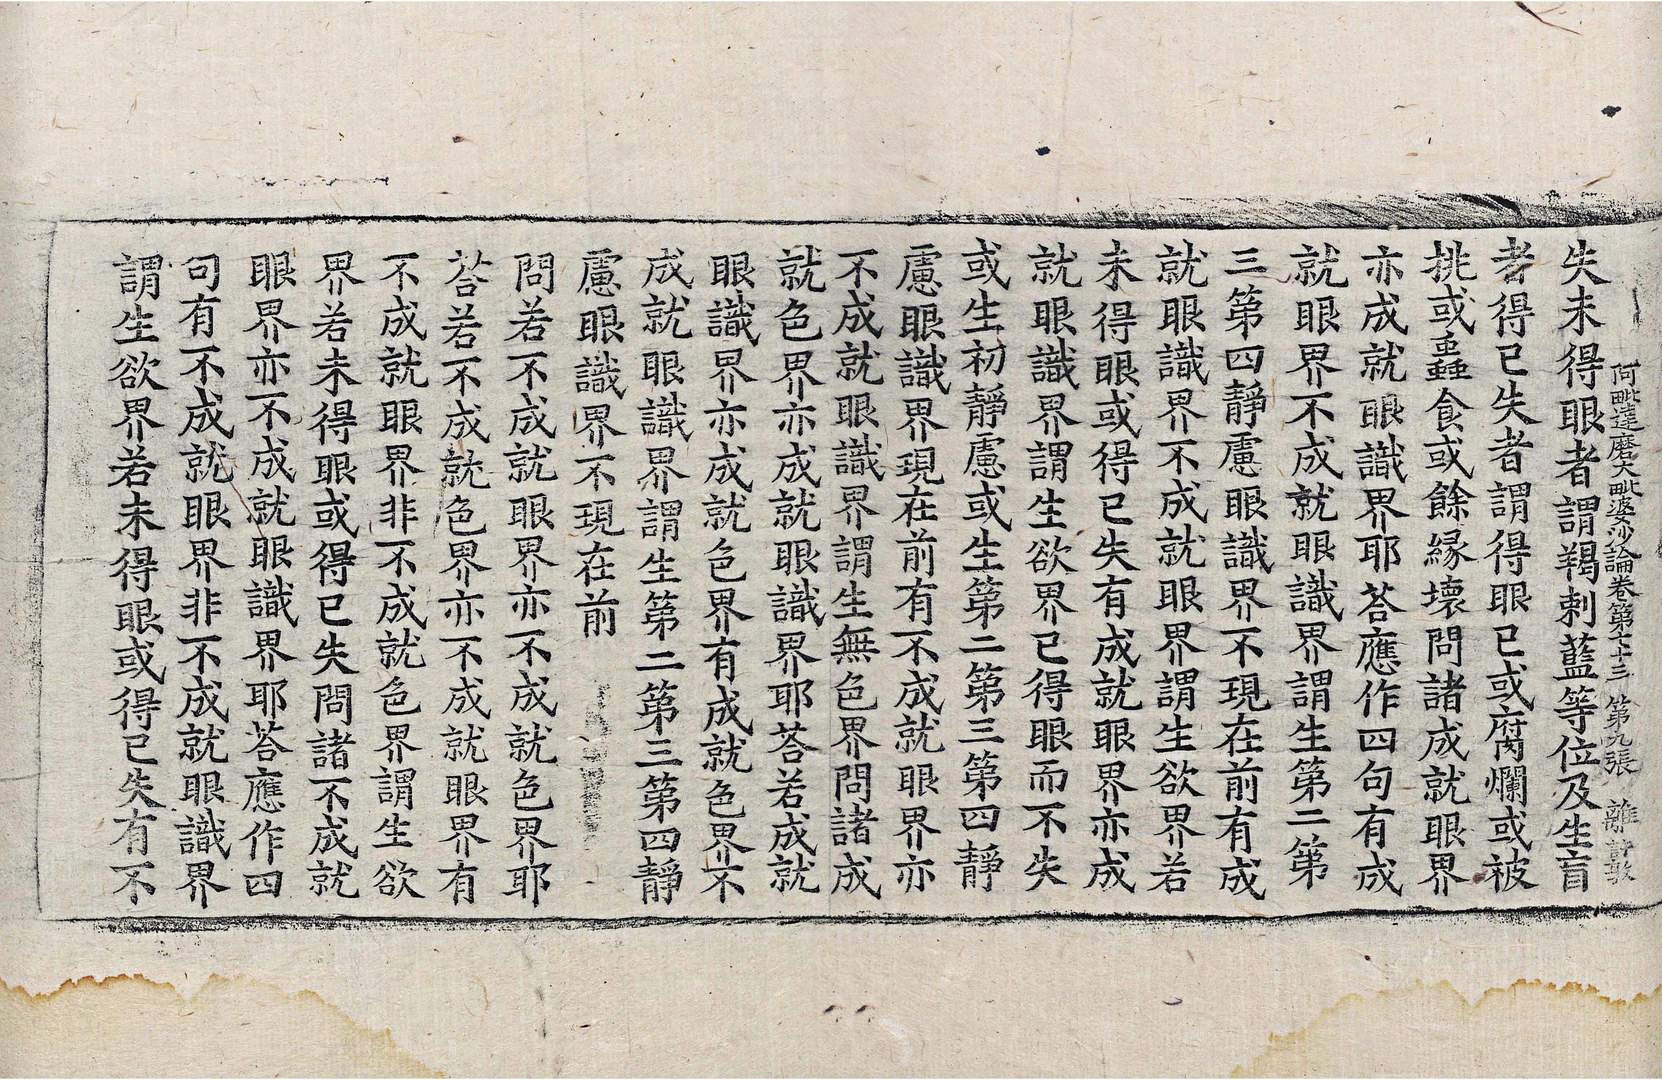 阿毗達磨大毗婆沙論卷第七十三 第九張 離
失未得眼者謂羯剌藍等位及生盲
者得已失者謂得眼已或腐爛或被
挑或蟲食或餘緣壞問諸成就眼界
亦成就眼識界耶荅應作四句有成
就眼界不成就眼識界謂生第二第
三第四靜慮眼識界不現在前有成
就眼識界不成就眼界謂生欲界若
未得眼或得已失有成就眼界亦成
就眼識界謂生欲界已得眼而不失
或生初靜慮或生第二第三第四靜
慮眼識界現在前有不成就眼界亦
不成就眼識界謂生無色界問諸成
就色界亦成就眼識界耶荅若成就
眼識界亦成就色界有成就色界不
成就眼識界謂生第二第三第四靜
慮眼識界不現在前
問若不成就眼界亦不成就色界耶
荅若不成就色界亦不成就眼界有
不成就眼界非不成就色界謂生欲
界若未得眼或得已失問諸不成就
眼界亦不成就眼識界耶荅應作四
句有不成就眼界非不成就眼識界
謂生欲界若未得眼或得已失有不